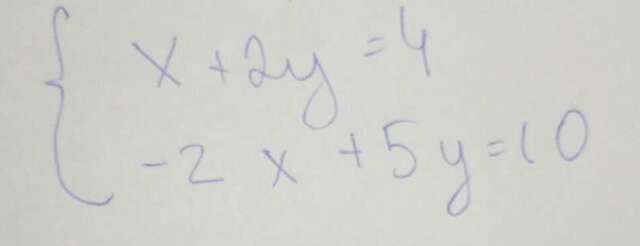 x + 2y = 4
-2x + 5y = 10